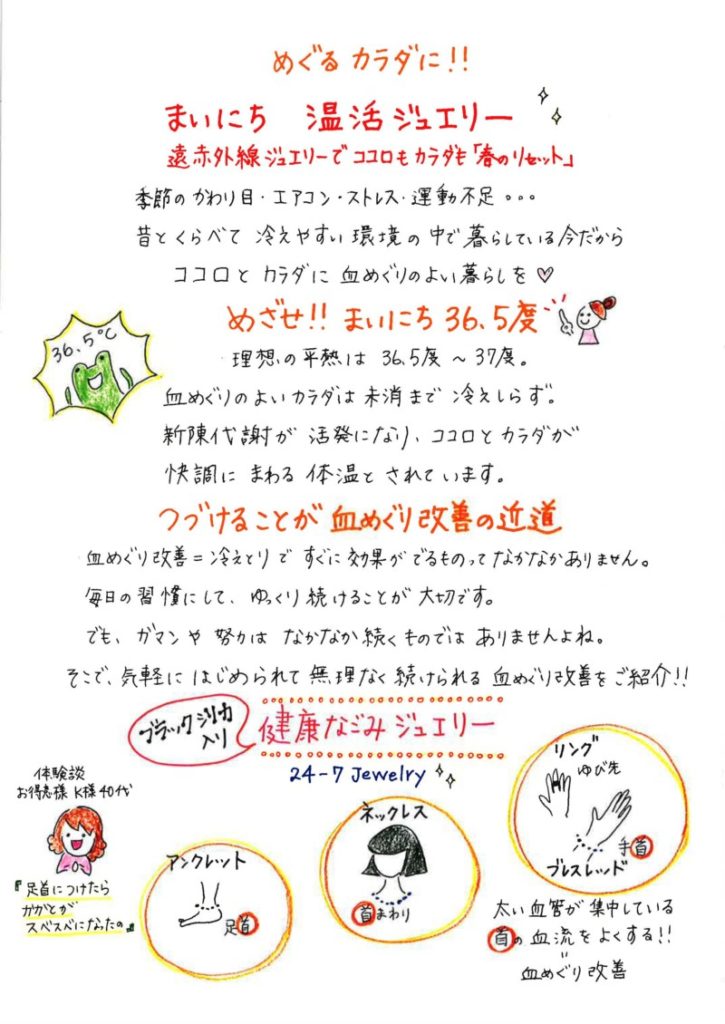 めぐる カラダに!!
まいにち 温活ジュエリー
遠赤外線ジュエリーで ココロも カラダも「春のリセット」
季節の かわり目・エアコン・ストレス・運動不足・・・
昔と くらべて 冷えやすい 環境の 中で 暮らしている 今だから
ココロと カラダに 血めぐりの よい 暮らしを♡
めざせ!! まいにち 36.5度
36.5℃
理想の 平熱は 36.5度 〜 37度。
血めぐりの よい カラダは 末消まで 冷えしらず。
新陳代謝が 活発になり、ココロと カラダが
快調に まわる 体温と されています。
つづけることが 血めぐり 改善の 近道
血めぐり 改善=冷えとりで すぐに 効果が でるものって なかなか ありません。
毎日の 習慣にして、ゆっくり 続けることが 大切です。
でも、ガマンや 努力は なかなか 続くものでは ありませんよね。
そこで、気軽に はじめられて 無理なく 続けられる 血めぐり改善を ご紹介!!
ブラックシリカ
入り
健康なごみ ジュエリー
24-7 Jewelry
体験談
お得意様 K様 40代
『足首につけたら
かかとが
スベスベになったの』
アンクレット
足首
ネックレス
首まわり
リング
ゆび先
手首
ブレスレッド
太い 血管が 集中している
首の 血流を よくする!!
=
血めぐり 改善